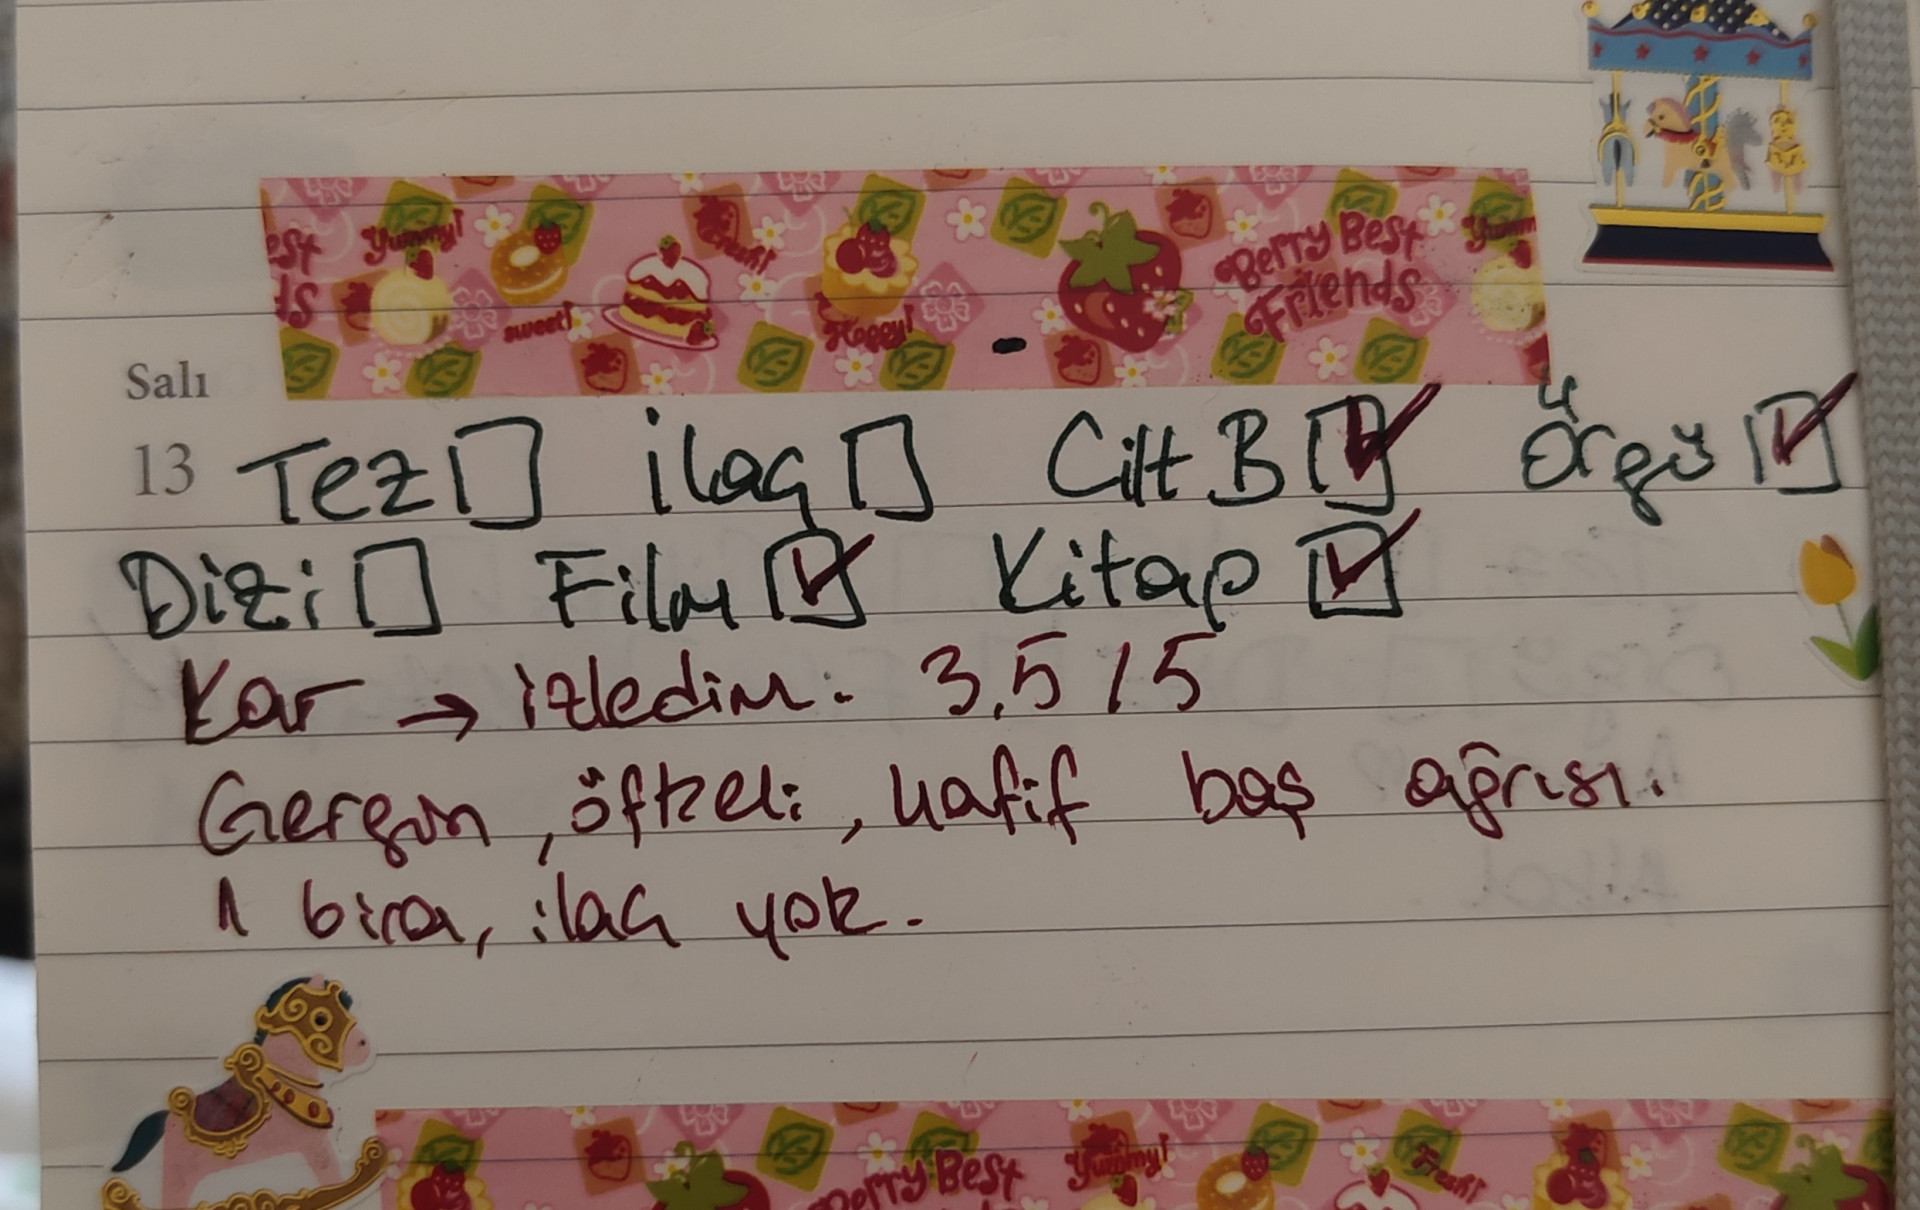 est Yummy! Fresh! Berry Best Yumm
ds sweet! Happy! Friends
Salı
13 Tez İlaç Cilt B Örgü
Dizi Film Kitap
Kar → izledim. 3,5/5
Gergin, öfkeli, hafif baş ağrısı.
1 bira, ilaç yok.
Berry Best Yummy! Fresh!